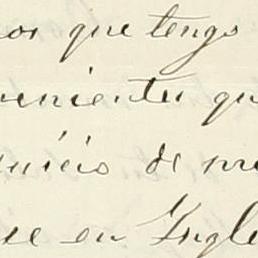 nos que tengo
venientes qu
inicio de me
se en Ingle